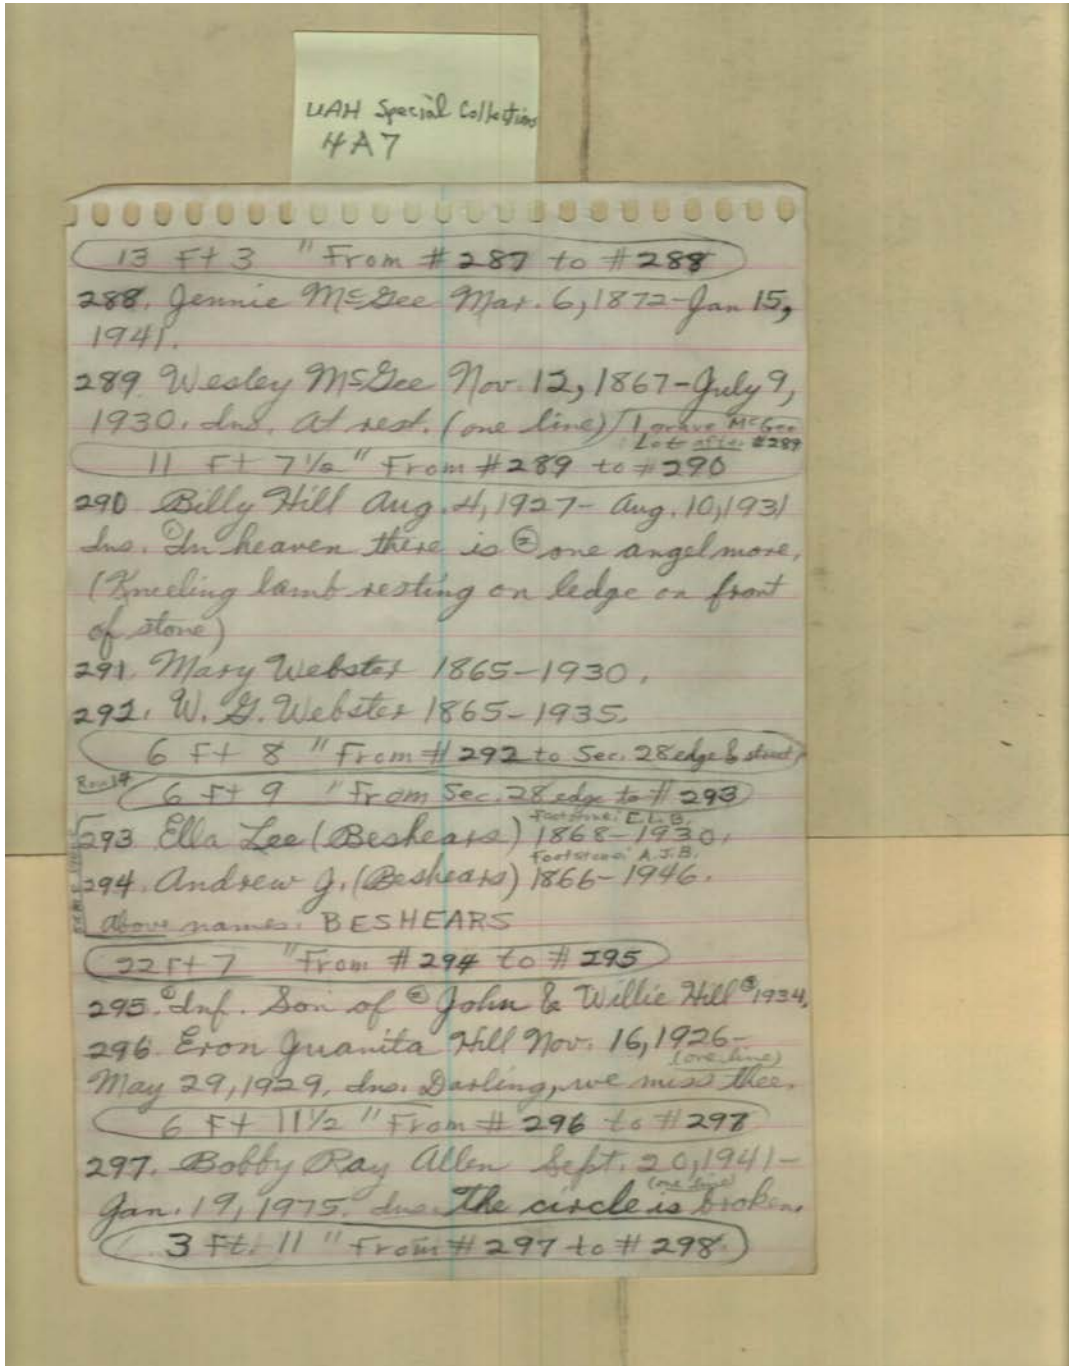 UAH Special Collections
4A7
13 Ft 3 " From #287 to #288
288. Jennie McGee Mar. 6, 1872-Jan 15,
1941.
289. Wesley McGee Nov. 12, 1867-July 9,
1930. Ins. At rest. (one line) 1 grave McGee
Lot after #289
11 Ft 7½" From #289 to #290
290 Billy Hill Aug. 4, 1927- Aug. 10, 1931
Ins. ① In heaven there is ② one angel more.
(Kneeling lamb resting on ledge on front
of stone)
291. Mary Webster 1865-1930.
292. W. G. Webster 1865-1935.
6 Ft 8 " From #292 to Sec. 28 edge & street
Row
6 Ft 9 " From Sec. 28 edge to #293
Footstone: E.L.B.
293 Ella Lee (Beshears) 1868-1930.
Footstone: A.J.B.
294. Andrew J. (Beshears) 1866-1946.
Above names: BESHEARS
22 Ft 7 " From #294 to #295
295. ① Inf. Son of ② John & Willie Hill ③ 1934.
296. Eron Juanita Hill Nov. 16, 1926-
(one line)
May 29, 1929. Ins. Darling, we miss thee.
6 Ft 11½ " From #296 to #297
297. Bobby Ray Allen Sept. 20, 1941-
(one line)
Jan. 19, 1975. Ins. The circle is broken.
3 Ft. 11 " From #297 to #298.